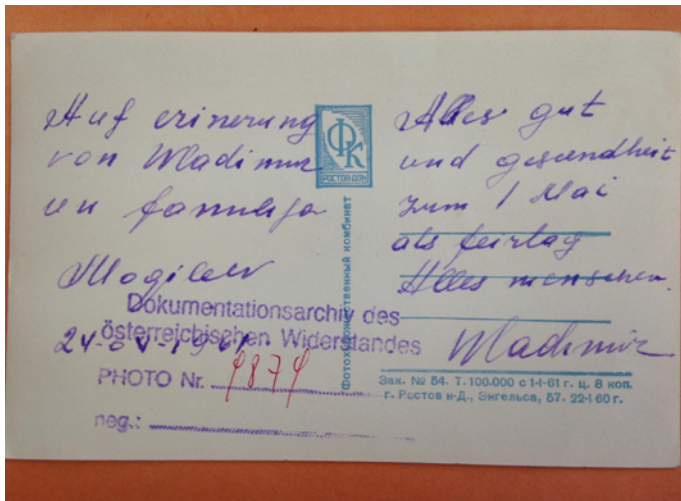 Auf erinerung
von Wladimir
un familija
Mogilew
Dokumentationsarchiv des
österreichischen Widerstandes
PHOTO Nr.
neg.:
ФК
РОСТОВ-ДОН
Фотохудожественный комбинат
Alles gut
und gesundheit
zum 1 Mai
als feirtag
Alles menschen.
Wladimir
Зак. № 54. Т. 100.000 с 1-I-61 г. ц. 8 коп.
г. Ростов н-Д., Энгельса, 57. 22-I 60 г.